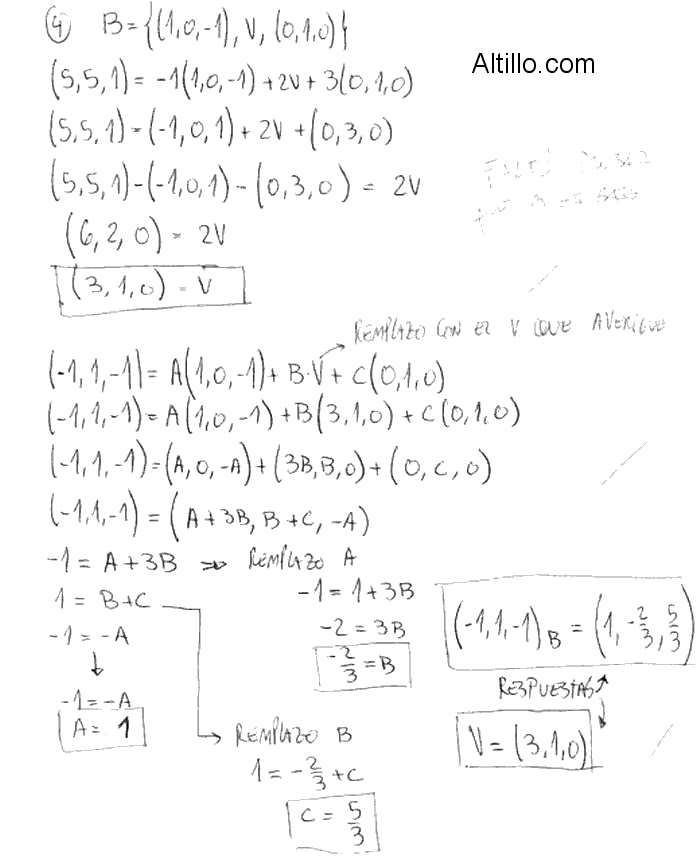 4) B = {(1,0,-1), V, (0,1,0)}
Altillo.com
(5,5,1) = -1(1,0,-1) + 2V + 3(0,1,0)
(5,5,1) = (-1,0,1) + 2V + (0,3,0)
(5,5,1) - (-1,0,1) - (0,3,0) = 2V
FALTÓ
(6,2,0) = 2V
(3,1,0) = V
REMPLAZO CON EL V QUE AVERIGUO
(-1,1,-1) = A(1,0,-1) + B·V + C(0,1,0)
(-1,1,-1) = A(1,0,-1) + B(3,1,0) + C(0,1,0)
(-1,1,-1) = (A,0,-A) + (3B,B,0) + (0,C,0)
(-1,1,-1) = (A+3B, B+C, -A)
-1 = A+3B ⇒ REMPLAZO A
-1 = 1+3B
-2 = 3B
-2/3 = B
1 = B+C
-1 = -A
↓
-1 = -A
A = 1
REMPLAZO B
1 = -2/3 + C
C = 5/3
(-1,1,-1)B = (1, -2/3, 5/3)
RESPUESTAS
V = (3,1,0)